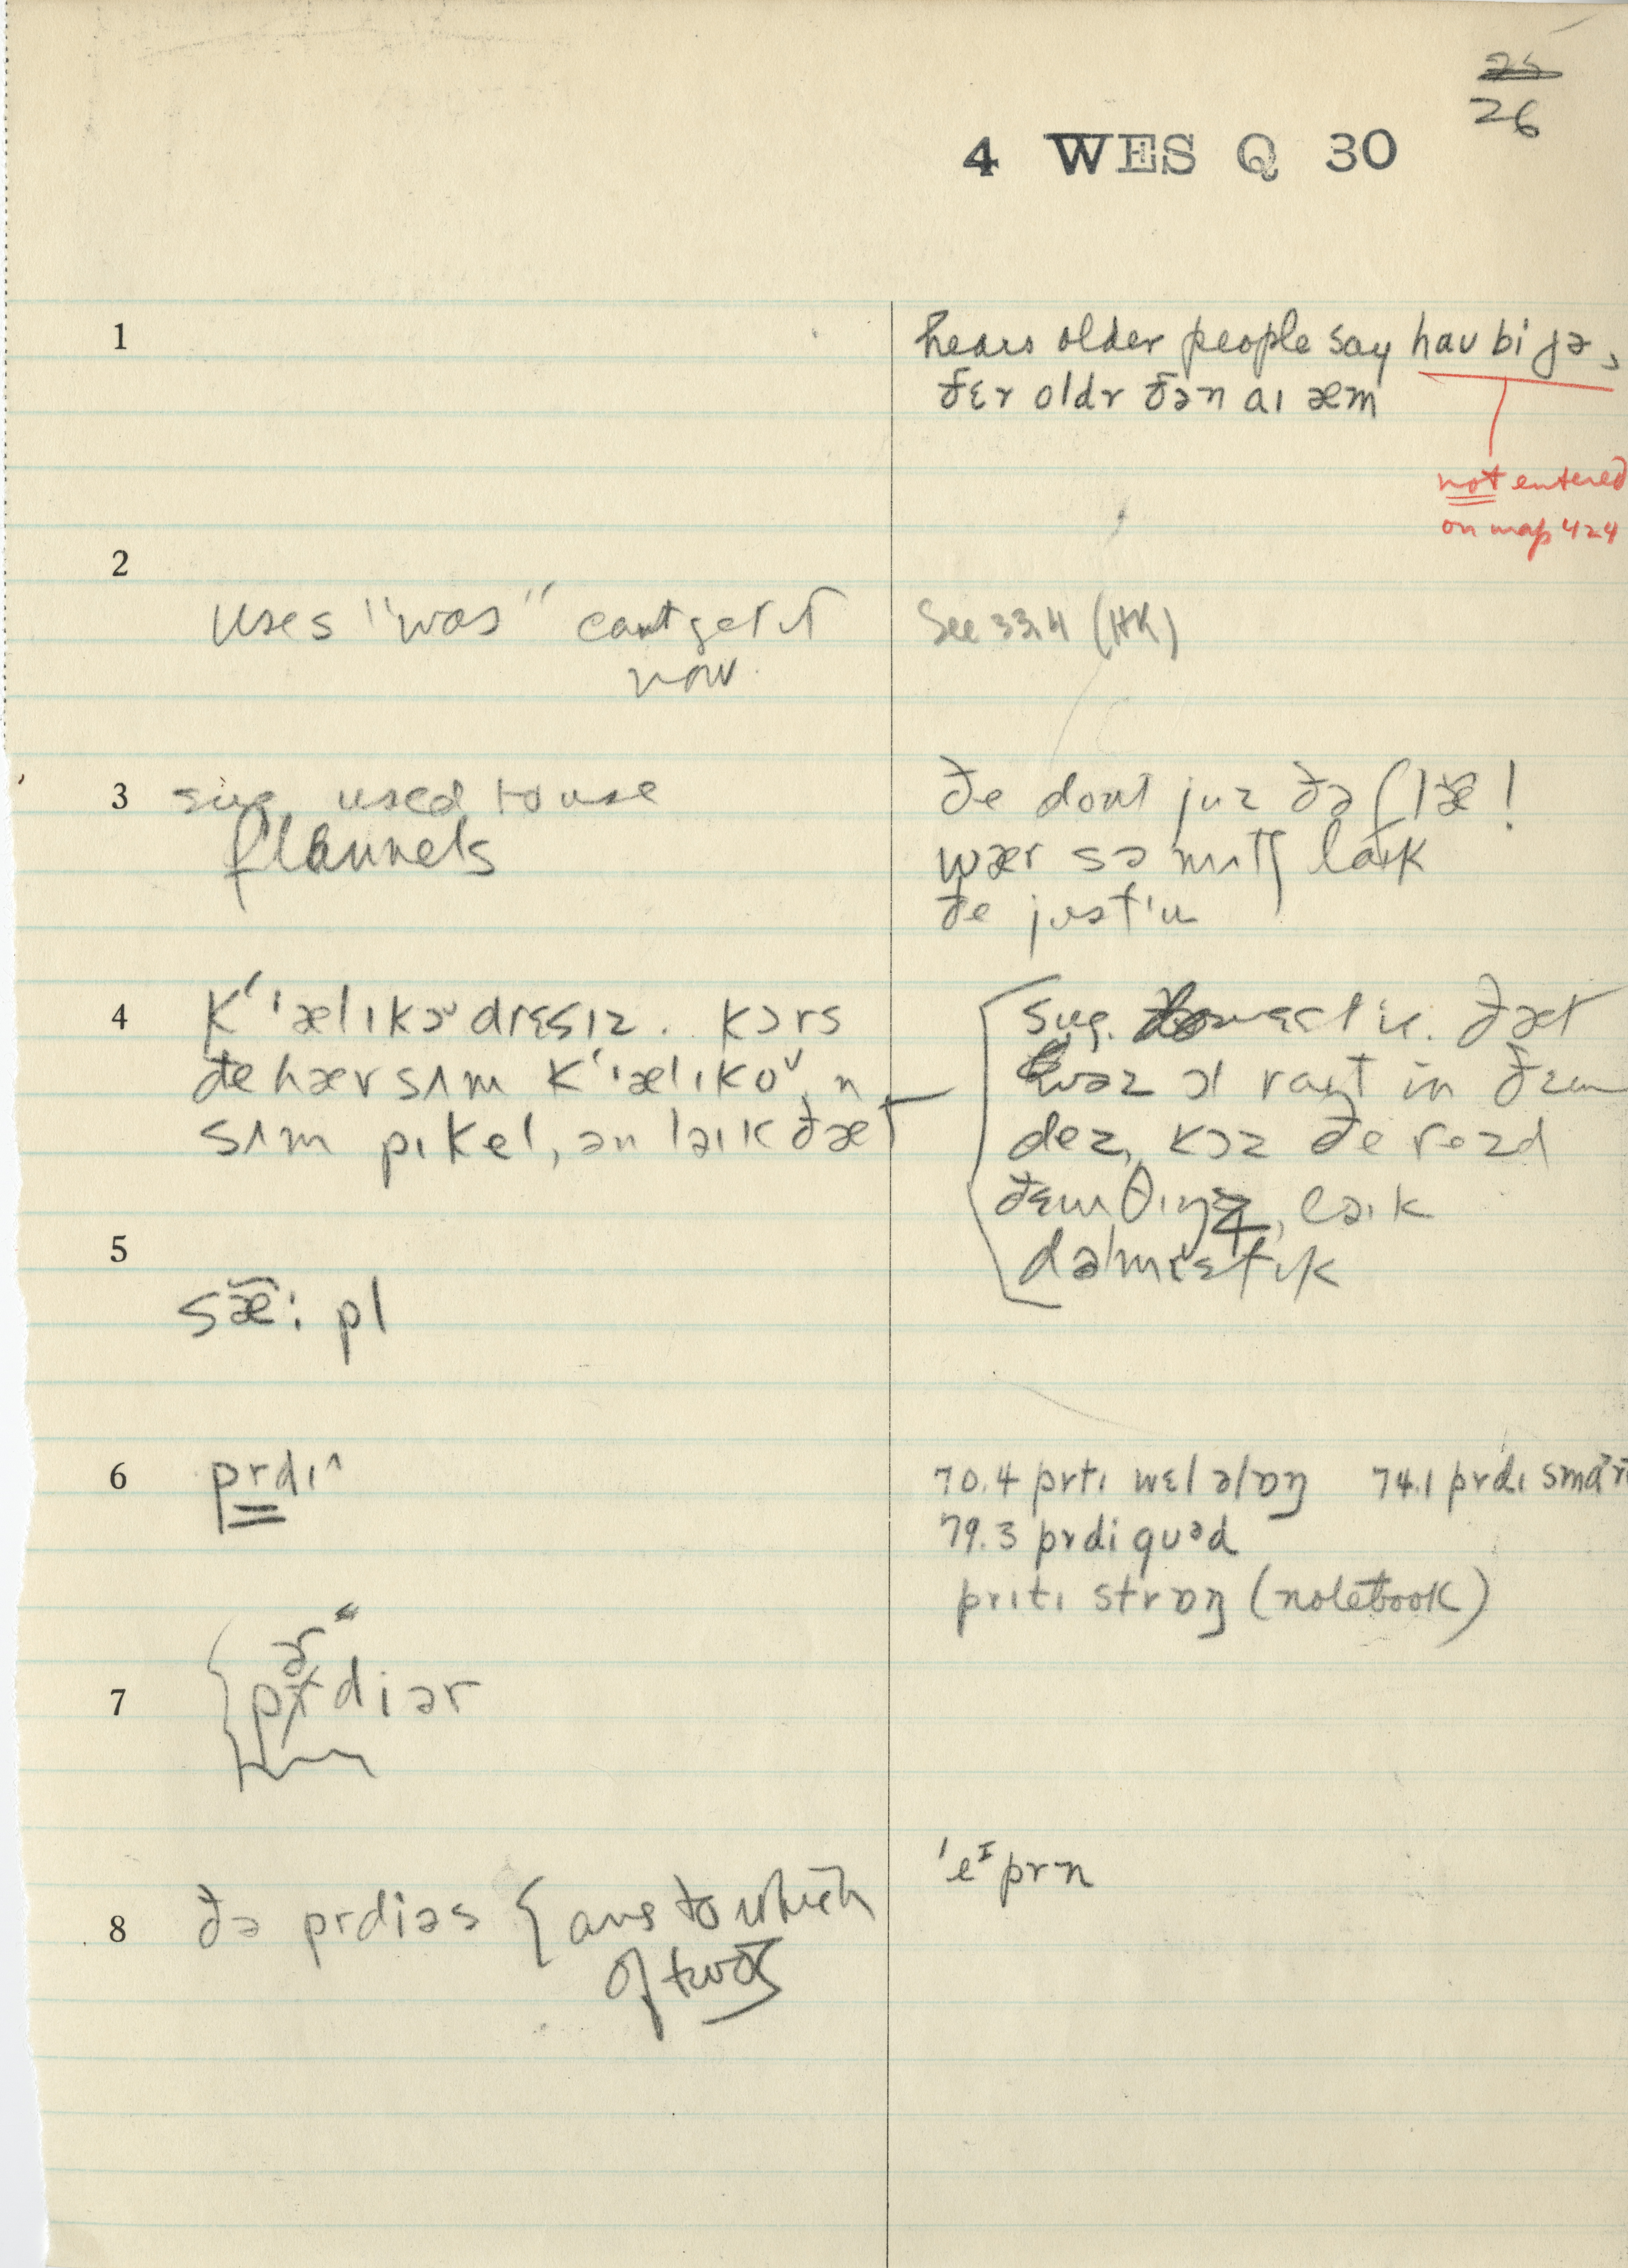 26
4 WES Q 30
1
hears older people say hau bi jə,
ðɛr oldr ðən aɪ æm
not entered
on map 424
2
uses "was" cant get it
now.
See 33.4 (HK)
3
sug. used to use
flannels
ðe dont juz ðə flæ!
wær so mʌtʃ laɪk
ðe just'u
4
k'ælɪkəᵛdrɛsɪz. kɔrs
ðe hær sʌm k'ælɪkoᵛ, n
sʌm pɪkel, ən laɪk ðæt
sug. ðæt
wəz ɔl raɪt in ðɛm
dez, kɔz ðe rezd
ðɛm θɪŋz, laɪk
dəˈmɛstɪk
5
sæ̃: pl
6
prdɪ^
70.4 prtɪ wɛl əlɒŋ 74.1 prdɪ smaᵊrt
79.3 prdi guᵊd
prɪtɪ strɒŋ (notebook)
7
prdiər
8
ðə prdiəs { ans to which
of two's
'eᴵprn